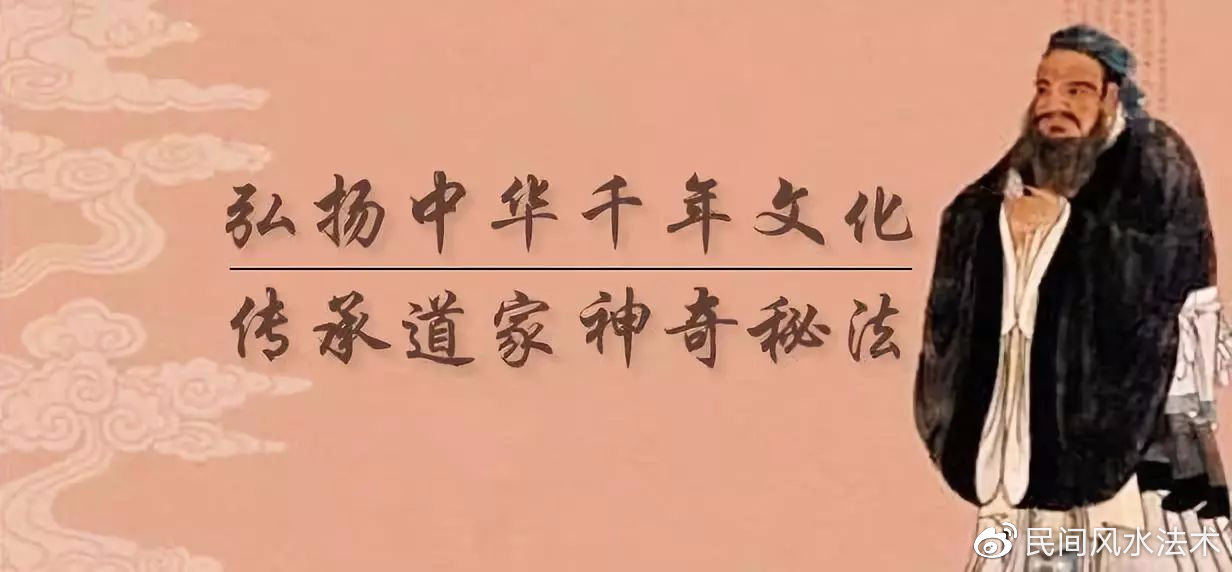 弘扬中华千年文化
传承道家神奇秘法
民间风水法术